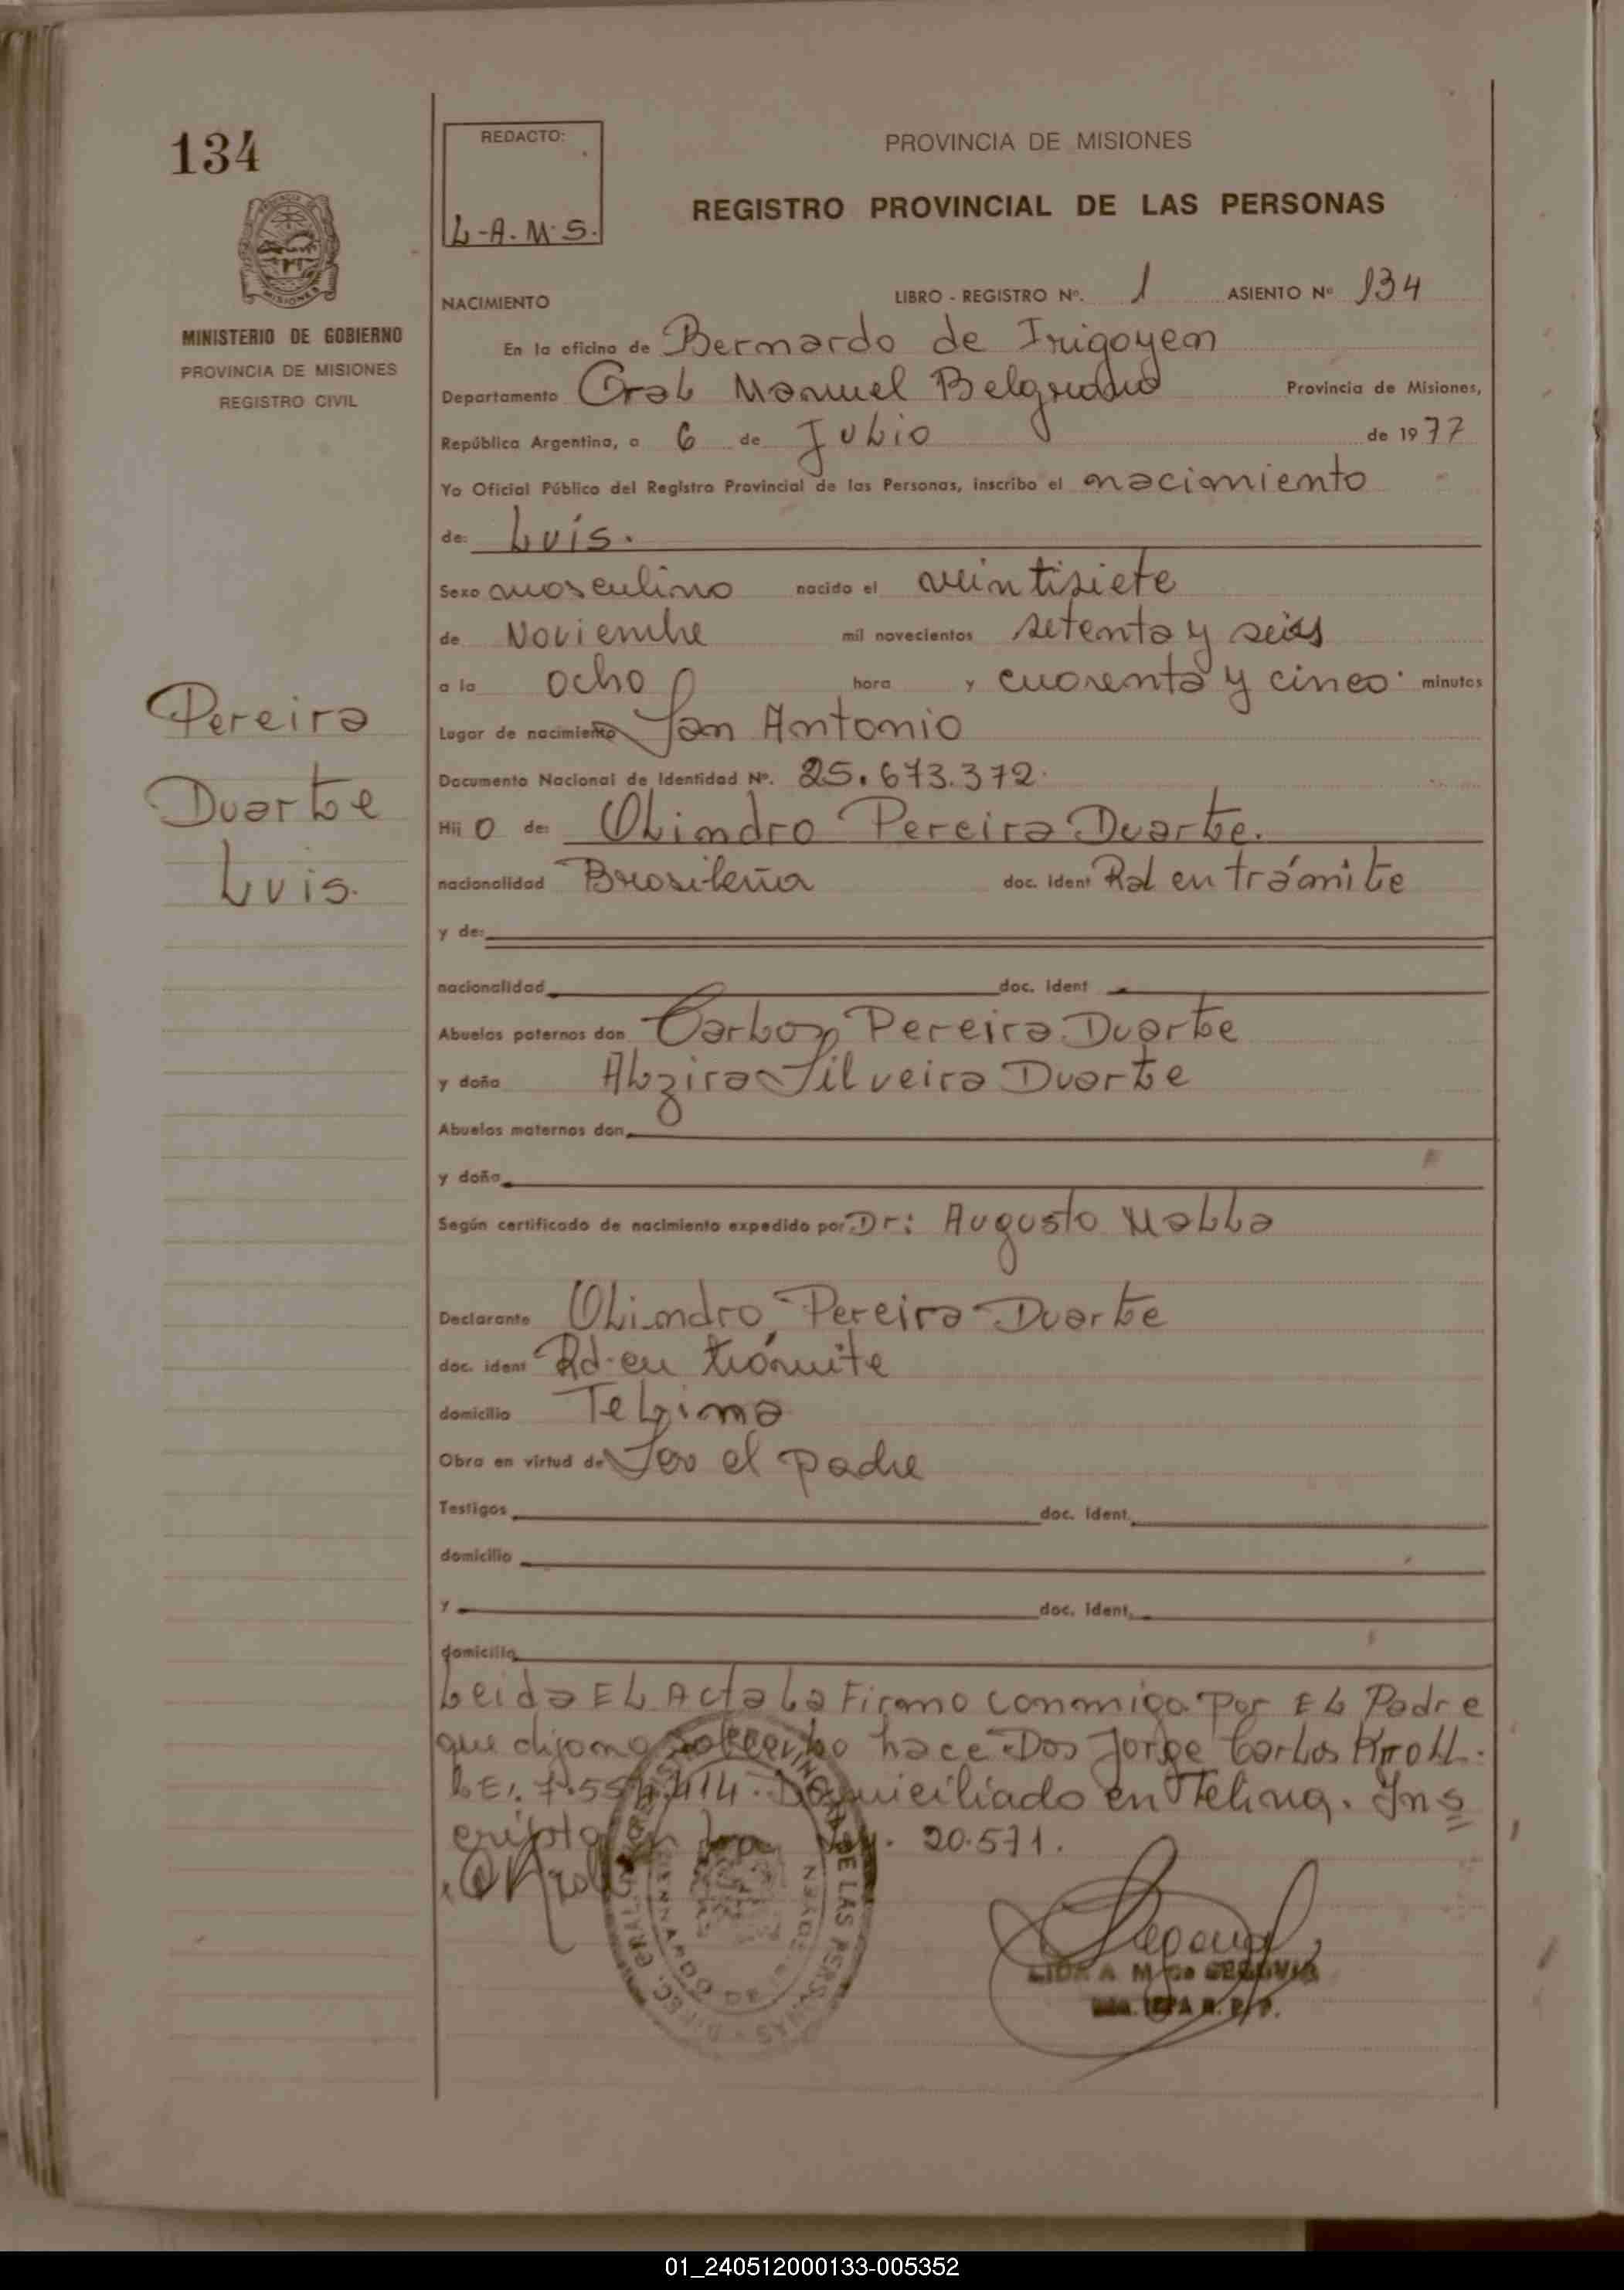 134
MINISTERIO DE GOBIERNO
PROVINCIA DE MISIONES
REGISTRO CIVIL
Pereira
Duarte
Luis.
REDACTO:
L-A.M.S.
PROVINCIA DE MISIONES
REGISTRO PROVINCIAL DE LAS PERSONAS
NACIMIENTO LIBRO - REGISTRO Nº. 1 ASIENTO Nº 134
En la oficina de Bernardo de Irigoyen
Departamento Gral Manuel Belgrano Provincia de Misiones,
República Argentina, a 6 de Julio de 1977
Yo Oficial Público del Registro Provincial de las Personas, inscribo el nacimiento
de: Luis.
Sexo masculino nacido el veintisiete
de Noviembre mil novecientos setenta y seis
a la ocho hora y cuarenta y cinco minutos
Lugar de nacimiento San Antonio
Documento Nacional de Identidad Nº. 25.673.372.
Hij o de: Olindro Pereira Duarte.
nacionalidad Brasileña doc. Ident Rd en trámite
y de:
nacionalidad doc. Ident
Abuelos paternos don Carlos Pereira Duarte
y doña Alzira Silveira Duarte
Abuelos maternos don
y doña
Según certificado de nacimiento expedido por Dr: Augusto Malla
Declarante Olindro Pereira Duarte
doc. ident Rd. en trámite
domicilio Telina
Obra en virtud de Ser el padre
Testigos doc. Ident.
domicilio
y doc. Ident.
domicilio
Leida El Acta La Firma conmigo Por El Padre
que dijo no hace Don Jorge Carlos Kroll.
LE: 7.554.414. Domiciliado en Telina. Ins
cripta Ley. 20.571.
DE LAS PERSONAS
01_240512000133-005352